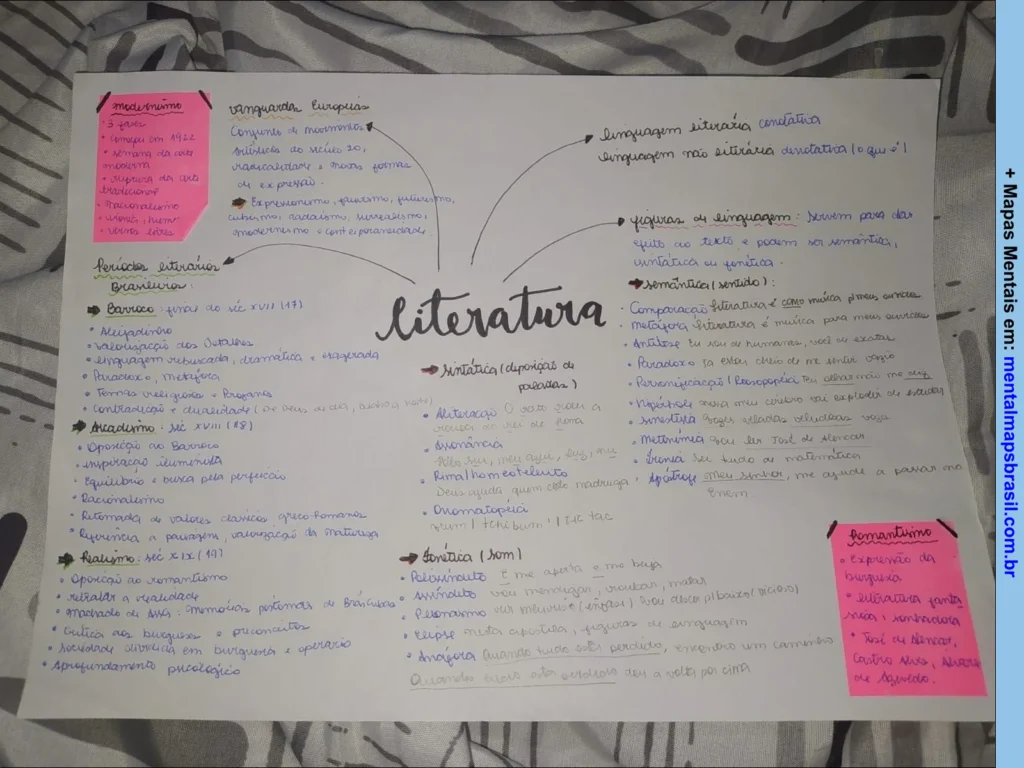 modernismo
• 3 fases
• começou em 1922
• semana da arte
moderna
• ruptura da arte
tradicional
• nacionalismo
• versos livres
vanguardas Europeias
Conjunto de movimentos
artísticos do século 20,
radicalidade e novas formas
de expressão.
Expressionismo, fauvismo, futurismo,
cubismo, dadaísmo, surrealismo,
modernismo e contemporaneidade
linguagem literária conotativa
linguagem não literária denotativa (o que é)
figuras de linguagem: servem para dar
efeito ao texto e podem ser semântica,
sintática ou fonética.
semântica (sentido):
• Comparação literatura é como música p/ meus ouvidos
• metáfora literatura é música para meus ouvidos
• Antítese Eu sou de humanas, você de exatas
• Paradoxo Já estou cheio de me sentir vazio
• Personificação / Prosopopéia Teu olhar não me diz
• Hipérbole meu cérebro vai explodir de estudar
• sinestesia
• metonímia vou ler José de Alencar
• Ironia sei tudo de matemática
• Apóstrofe meu senhor, me ajude a passar no
Enem
literatura
Períodos literários
Brasileiros:
Barroco: final do séc XVII (17)
• Aleijadinho
• Valorização dos detalhes
• linguagem rebuscada, dramática e exagerada
• Paradoxo, metáfora
• Temas religiosos e Profanos
• Contradição e dualidade
Arcadismo: séc XVIII (18)
• Oposição ao Barroco
• inspiração iluminista
• Equilíbrio e busca pela perfeição
• Racionalismo
• Retomada de valores clássicos greco-romanos
• Referência a paisagem, valorização da natureza
Realismo: séc XIX (19)
• Oposição ao romantismo
• retratar a realidade
• machado de Assis: memórias póstumas de Brás Cubas
• crítica aos burgueses e preconceitos
• sociedade dividida em burguesia e operário
• Aprofundamento psicológico
sintática (disposição de
palavras)
• Aliteração O rato roeu a
roupa do rei de Roma
• Assonância
• Rima / homeoteleuto
Deus ajuda quem cedo madruga
• Onomatopeia
/ tchibum / tic tac
fonética (som)
• Polissíndeto E me aperta e me beija
• Assíndeto vou mendigar, roubar, matar
• Pleonasmo vou descer p/ baixo (vício)
• elipse nesta apostila, figuras de linguagem
• Anáfora Quando tudo está perdido, encontro um caminho
Quando tudo está dou a volta por cima
Romantismo
• Expressão da
burguesia
• literatura
sonhadora
• José de Alencar,
Castro Alves, Álvares
de Azevedo.
+ Mapas Mentais em: mentalmapsbrasil.com.br